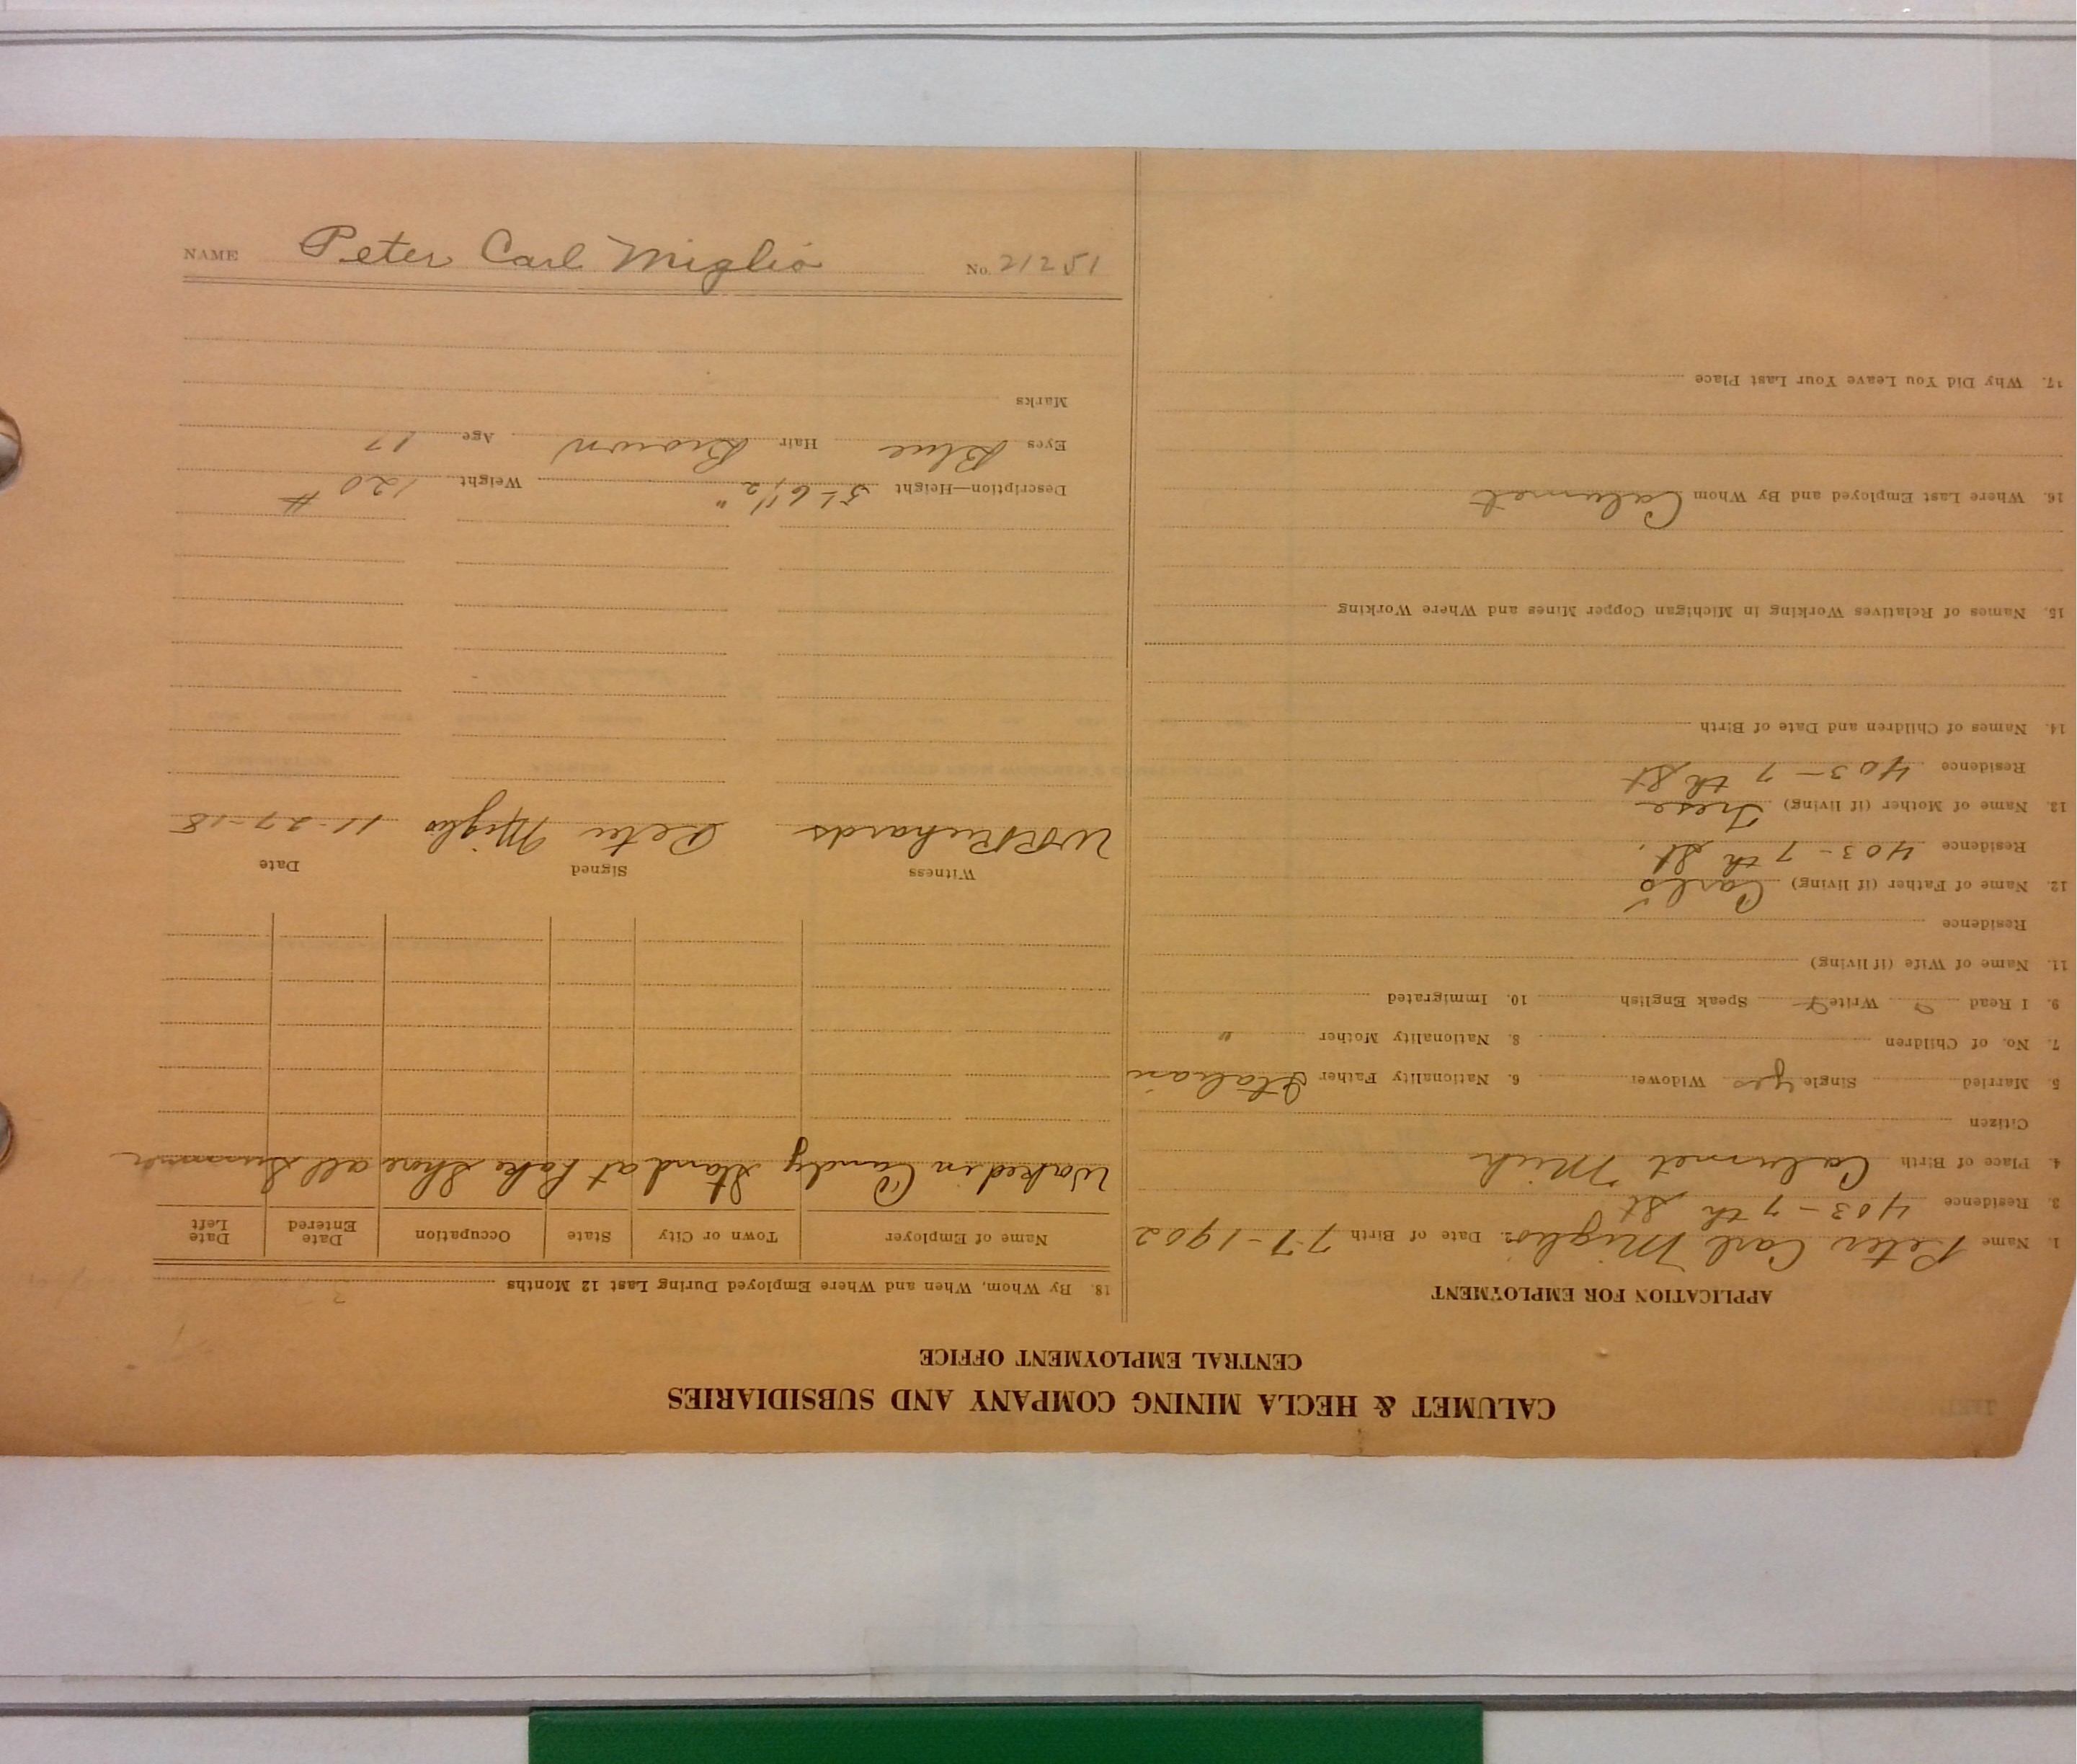 NAME Peter Carl Miglio No. 21251
CALUMET & HECLA MINING COMPANY AND SUBSIDIARIES
CENTRAL EMPLOYMENT OFFICE
APPLICATION FOR EMPLOYMENT
1. Name Peter Carl Miglio 2. Date of Birth 7-7-1902
3. Residence 403-7th St
4. Place of Birth Calumet Mich
Citizen
5. Married Single yes Widower 6. Nationality Father Italian
7. No. of Children 8. Nationality Mother "
9. I Read Write Speak English 10. Immigrated
11. Name of Wife (if living)
Residence
12. Name of Father (if living) Carlo
Residence 403-7th St.
13. Name of Mother (if living) Tresa
Residence 403-7th St
14. Names of Children and Date of Birth
15. Names of Relatives Working in Michigan Copper Mines and Where Working
16. Where Last Employed and By Whom Calumet
17. Why Did You Leave Your Last Place
18. By Whom, When and Where Employed During Last 12 Months
Name of Employer Town or City State Occupation Date Entered Date Left
Worked in Candy Stand at Lake Shore all Summer
Witness Signed Date
W R Richards Peter Miglio 11-27-18
Description—Height 5'-6 1/2" Weight 120 #
Eyes Blue Hair Brown Age 17
Marks